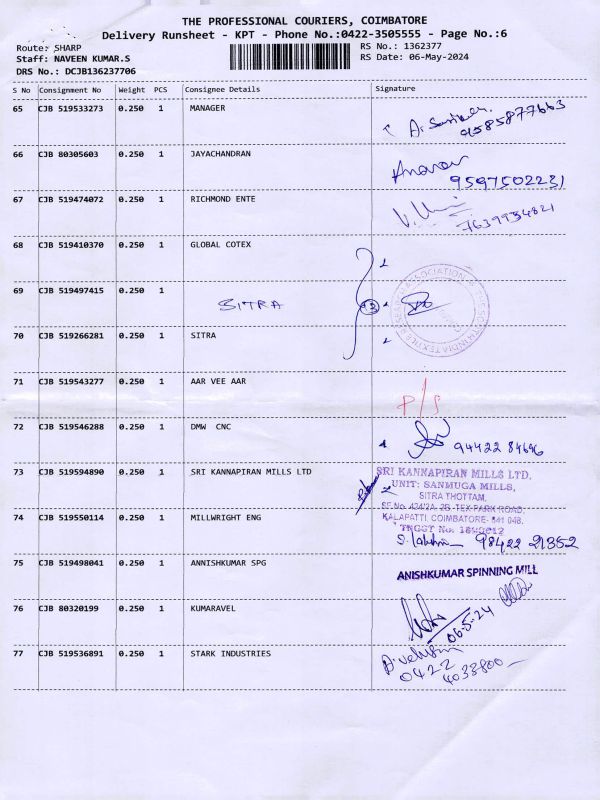 THE PROFESSIONAL COURIERS, COIMBATORE
Delivery Runsheet - KPT - Phone No.:0422-3505555 - Page No.:6
Route: SHARP
RS No.: 1362377
Staff: NAVEEN KUMAR.S
RS Date: 06-May-2024
DRS No.: DCJB136237706
S No Consignment No Weight PCS Consignee Details Signature
65 CJB 519533273 0.250 1 MANAGER
9585877663
66 CJB 80305603 0.250 1 JAYACHANDRAN
9597502231
67 CJB 519474072 0.250 1 RICHMOND ENTE
7639934821
68 CJB 519410370 0.250 1 GLOBAL COTEX
69 CJB 519497415 0.250 1 SITRA
70 CJB 519266281 0.250 1 SITRA
71 CJB 519543277 0.250 1 AAR VEE AAR
P/S
72 CJB 519546288 0.250 1 DMW CNC
94422 84696
73 CJB 519594890 0.250 1 SRI KANNAPIRAN MILLS LTD
SRI KANNAPIRAN MILLS LTD.
UNIT: SANMUGA MILLS,
SITRA THOTTAM,
SF.No. 424/2A, 2B, TEX PARK ROAD,
KALAPATTI, COIMBATORE- 641 048.
74 CJB 519550114 0.250 1 MILLWRIGHT ENG
98422 21352
75 CJB 519498041 0.250 1 ANNISHKUMAR SPG
ANISHKUMAR SPINNING MILL
76 CJB 80320199 0.250 1 KUMARAVEL
06-5-24
77 CJB 519536891 0.250 1 STARK INDUSTRIES
0422
4033800